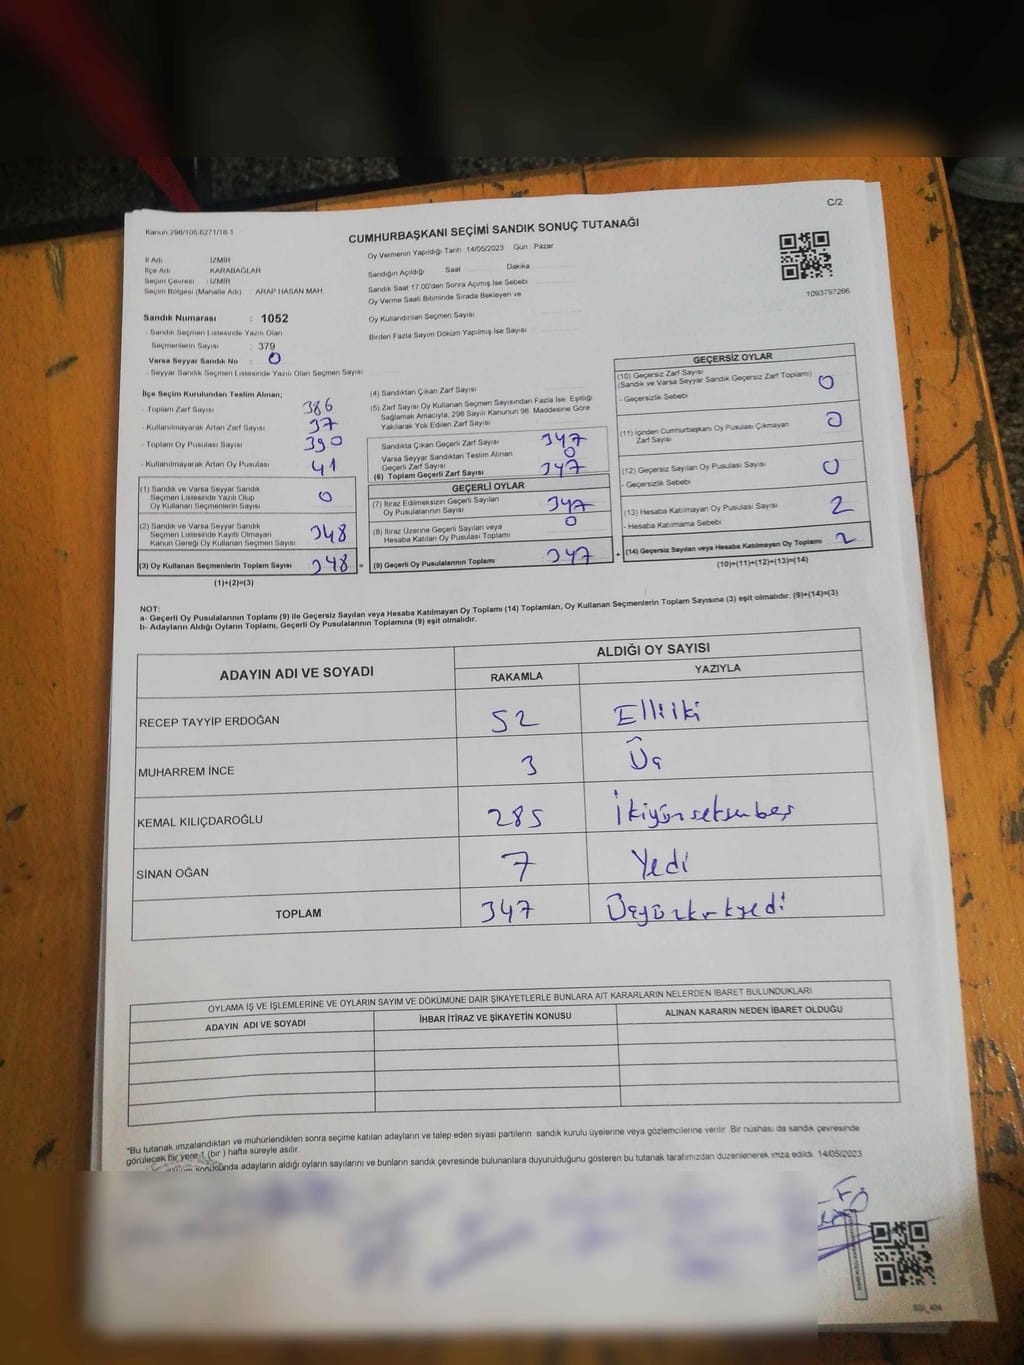 C/2
Kanun:298/105,6271/18-1
CUMHURBAŞKANI SEÇİMİ SANDIK SONUÇ TUTANAĞI
İl Adı : İZMİR
İlçe Adı : KARABAĞLAR
Seçim Çevresi : İZMİR
Seçim Bölgesi (Mahalle Adı) : ARAP HASAN MAH
Oy Vermenin Yapıldığı Tarih: 14/05/2023 Gün : Pazar
Sandığın Açıldığı Saat Dakika
Sandık Saat 17.00'den Sonra Açımış İse Sebebi
Oy Verme Saati Bitiminde Sırada Bekleyen ve
Oy Kullandırılan Seçmen Sayısı
Birden Fazla Sayım Döküm Yapılmış İse Sayısı
1093797266
Sandık Numarası : 1052
- Sandık Seçmen Listesinde Yazılı Olan
Seçmenlerin Sayısı : 379
Varsa Seyyar Sandık No : 0
- Seyyar Sandık Seçmen Listesinde Yazılı Olan Seçmen Sayısı
İlçe Seçim Kurulundan Teslim Alınan;
- Toplam Zarf Sayısı 386
- Kullanılmayarak Artan Zarf Sayısı 37
- Toplam Oy Pusulası Sayısı 390
- Kullanılmayarak Artan Oy Pusulası 41
(1) Sandık ve Varsa Seyyar Sandık
Seçmen Listesinde Yazılı Olup
Oy Kullanan Seçmenlerin Sayısı 0
(2) Sandık ve Varsa Seyyar Sandık
Seçmen Listesinde Kayıtlı Olmayan
Kanun Gereği Oy Kullanan Seçmen Sayısı 348
(3) Oy Kullanan Seçmenlerin Toplam Sayısı 348 =
(1)+(2)=(3)
(4) Sandıktan Çıkan Zarf Sayısı
(5) Zarf Sayısı Oy Kullanan Seçmen Sayısından Fazla İse, Eşitliği
Sağlamak Amacıyla, 298 Sayılı Kanunun 98. Maddesine Göre
Yakılarak Yok Edilen Zarf Sayısı
Sandıkta Çıkan Geçerli Zarf Sayısı 347
Varsa Seyyar Sandıktan Teslim Alınan
Geçerli Zarf Sayısı 0
(6) Toplam Geçerli Zarf Sayısı 347
GEÇERLİ OYLAR
(7) İtiraz Edilmeksizin Geçerli Sayılan
Oy Pusulalarının Sayısı 347
(8) İtiraz Üzerine Geçerli Sayılan veya
Hesaba Katılan Oy Pusulası Toplamı 0
(9) Geçerli Oy Pusulalarının Toplamı 347 +
GEÇERSİZ OYLAR
(10) Geçersiz Zarf Sayısı
(Sandık ve Varsa Seyyar Sandık Geçersiz Zarf Toplamı) 0
- Geçersizlik Sebebi
(11) İçinden Cumhurbaşkanı Oy Pusulası Çıkmayan
Zarf Sayısı 0
(12) Geçersiz Sayılan Oy Pusulası Sayısı 0
- Geçersizlik Sebebi
(13) Hesaba Katılmayan Oy Pusulası Sayısı 2
- Hesaba Katılmama Sebebi
(14) Geçersiz Sayılan veya Hesaba Katılmayan Oy Toplamı 2
(10)+(11)+(12)+(13)=(14)
NOT:
a- Geçerli Oy Pusulalarının Toplamı (9) ile Geçersiz Sayılan veya Hesaba Katılmayan Oy Toplamı (14) Toplamları, Oy Kullanan Seçmenlerin Toplam Sayısına (3) eşit olmalıdır. (9)+(14)=(3)
b- Adayların Aldığı Oyların Toplamı, Geçerli Oy Pusulalarının Toplamına (9) eşit olmalıdır.
ADAYIN ADI VE SOYADI ALDIĞI OY SAYISI
RAKAMLA YAZIYLA
RECEP TAYYİP ERDOĞAN 52 Elliiki
MUHARREM İNCE 3 Üç
KEMAL KILIÇDAROĞLU 285 İkiyüzseksenbeş
SİNAN OĞAN 7 Yedi
TOPLAM 347 Üçyüzkırkyedi
OYLAMA İŞ VE İŞLEMLERİNE VE OYLARIN SAYIM VE DÖKÜMÜNE DAİR ŞİKAYETLERLE BUNLARA AİT KARARLARIN NELERDEN İBARET BULUNDUKLARI
ADAYIN ADI VE SOYADI İHBAR İTİRAZ VE ŞİKAYETİN KONUSU ALINAN KARARIN NEDEN İBARET OLDUĞU
*Bu tutanak imzalandıktan ve mühürlendikten sonra seçime katılan adayların ve talep eden siyasi partilerin sandık kurulu üyelerine veya gözlemcilerine verilir. Bir nüshası da sandık çevresinde
görülecek bir yere 1 (bir ) hafta süreyle asılır.
sonucunda adayların aldığı oyların sayılarını ve bunların sandık çevresinde bulunanlara duyurulduğunu gösteren bu tutanak tarafımızdan düzenlenerek imza edildi. 14/05/2023